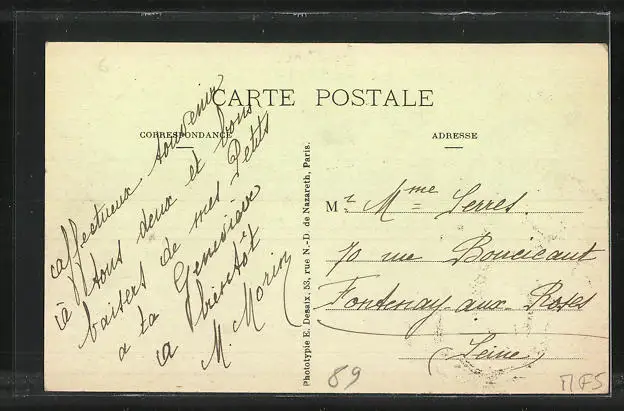 CARTE POSTALE
CORRESPONDANCE
ADRESSE
affectueux souvenir
à tous deux et bons
baisers de mes Petits
a ta Geneviève
a bientôt
M. Morion
Photolypie E. Desaix, 53, rue N.-D. de Nazareth, Paris.
Mr Mme Serres
70 rue Boucicaut
Fontenay-aux-Roses
(Seine)
89